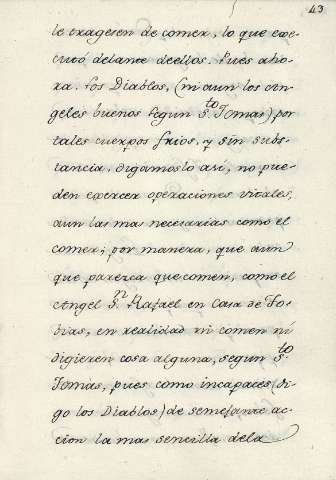 43
le traxesen de comer, lo que exe-
cutó delante de ellos. Pues aho-
xa. Los Diablos, (ni aun los An-
geles buenos segun S.to Tomas) por
tales cuerpos frios, y sin subs-
tancia, digamoslo asi, no pue-
den exercer operaciones vitales,
aun las mas necesarias como el
comer; por manera, que aun
que parezca que comen, como el
Angel S.n Rafael en Casa de To-
bias, en realidad ni comen ni
digieren cosa alguna, segun S.to
Tomas, pues como incapaces (di-
go los Diablos) de semejante ac-
cion la mas sencilla dela